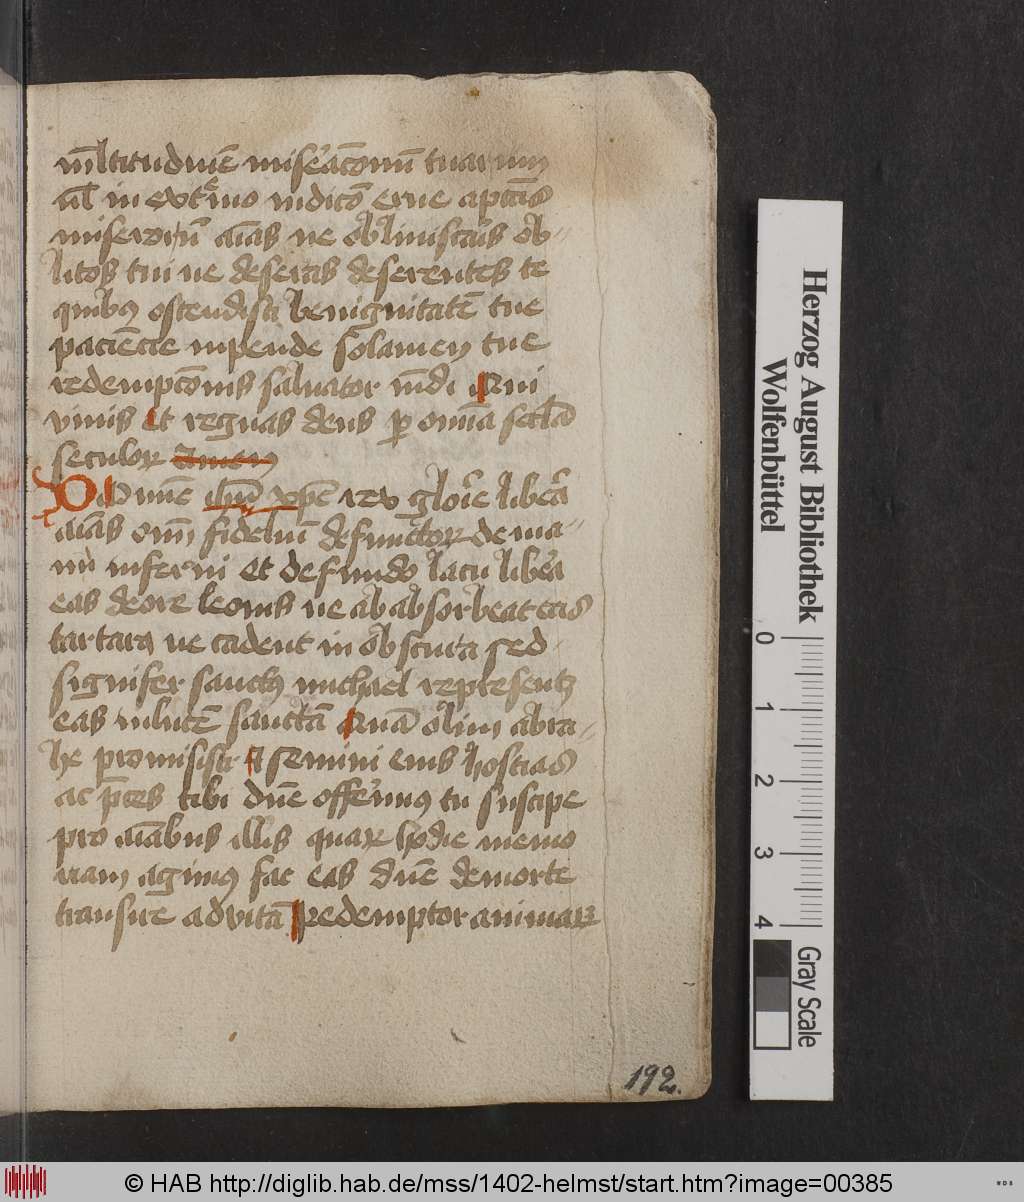 m̄ltitudinē miſeac̄onū tuarum
ul̄ in extᵉmo iudico᷆ erue aptās
miſeroꝝ aīas ne obliuiscaris ob-
litos tui ne deseras deserentes te
quibꝫ ostendisti benignitatē tue
paciēcie inpende solamen tue
redempc̄onis saluator mūdi Qui
viuis et regnas deus ꝑ omīa secl̄a
seculoꝝ Amen
O Domine ihū xpē rex glorīe liberā
aīas omī fideliū defunctoꝝ de ma-
nu inferni et de fundo lacu liberā
eas de ore leonis ne ababsorbeat eas
tartarꝰ ne cadent in obscura sed
signifer sanctꝰ michael representꝫ
eas in lucē sanctā Quā olim abra-
he promisisti ⁊ semini eius hostias
ac p̄ces tibi dn̄e offerimꝰ tu suscipe
pro aīabus illis quaꝝ hodie memo
riam agimꝰ fac eas dn̄e de morte
transire ad vitā Redemptor animaꝝ
192.
Herzog August Bibliothek
Wolfenbüttel
0 1 2 3 4
Gray Scale
© HAB http://diglib.hab.de/mss/1402-helmst/start.htm?image=00385